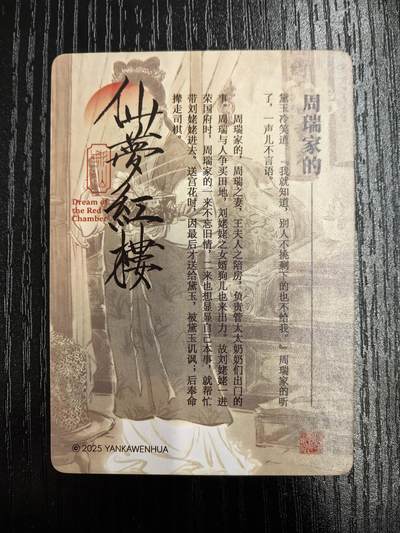 周瑞家的
黛玉冷笑道：“我就知道，别人不挑剩下的也不给我。”周瑞家的听
了，一声儿不言语。
周瑞家的，周瑞之妻，王夫人之陪房，负责管太太奶奶们出门的
事。周瑞与人争买田地，刘姥姥之女婿狗儿也来出力，故刘姥姥一进
荣国府时，周瑞家的一来不忘旧情，二来也想显显自己本事，就帮忙
带刘姥姥进去。送宫花时，因最后才送给黛玉，被黛玉讥讽；后奉命
撵走司棋。
仙夢紅樓
Dream of
the Red
Chamber
© 2025 YANKAWENHUA